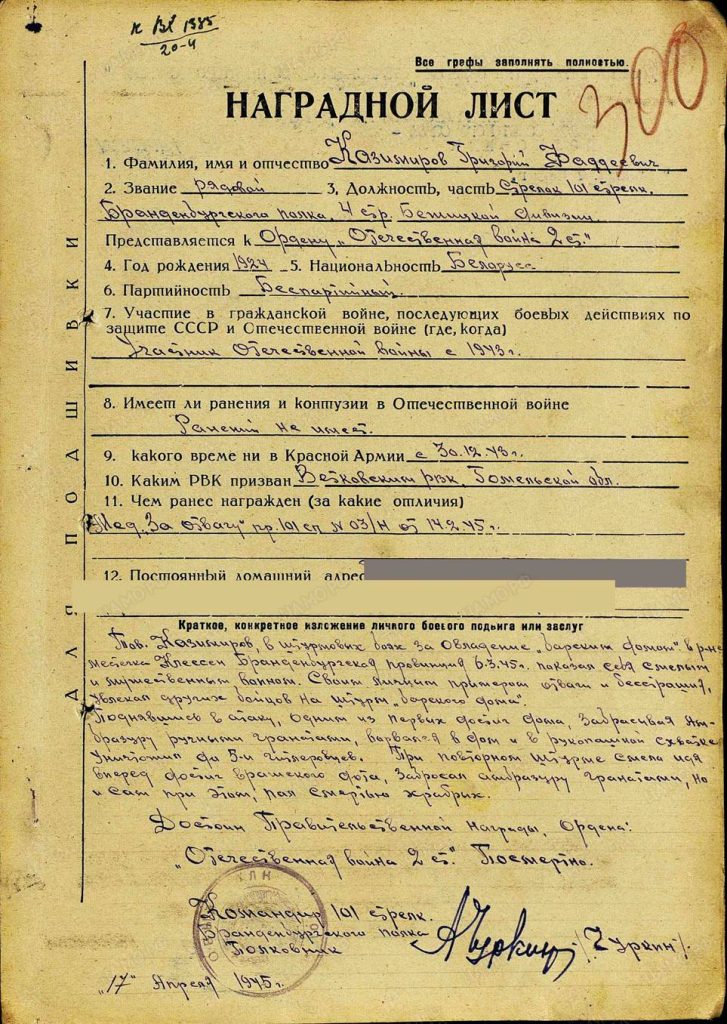 к Вх 1385
20-4
300
Все графы заполнять полностью.
НАГРАДНОЙ ЛИСТ
1. Фамилия, имя и отчество Казимиров Григорий Фаддеевич
2. Звание рядовой 3. Должность, часть Стрелок 101 стрелк.
Бранденбургского полка, 4 стр. Бежицкой дивизии.
Представляется к Ордену „Отечественная война 2 ст."
4. Год рождения 1924 5. Национальность Белорусс
6. Партийность Беспартийный
7. Участие в гражданской войне, последующих боевых действиях по
защите СССР и Отечественной войне (где, когда)
Участник Отечественной войны с 1943 г.
8. Имеет ли ранения и контузии в Отечественной войне
Ранений не имеет.
9. какого време ни в Красной Армии с 30.12.43 г.
10. Каким РВК призван Ветковским рвк, Гомельской обл.
11. Чем ранес награжден (за какие отличия)
Мед. „За отвагу" пр. 101 сп N 03/н от 14.2.45 г.
12. Постоянный домашний адрес
Краткое, конкретное изложение личного боевого подвига или заслуг
Тов. Казимиров, в штурмовых боях за овладение „барским домом" в р-не
местечка Клессен Бранденбургская провинция 6.3.45 г. показал себя смелым
и мужественным воином. Своим личным примером отваги и бесстрашия,
увлекал других бойцов на штурм „барского дома".
Поднявшись в атаку, одним из первых достиг дома, забрасывая ам-
бразуру ручными гранатами, ворвался в дом и в рукопашной схватке
уничтожил до 5-и гитлеровцев. При повторном штурме смело идя
вперед достиг вражеского дота, забросал амбразуру гранатами, но
и сам при этом, пал смертью храбрых.
Достоин Правительственной награды, Ордена:
„Отечественная война 2 ст." Посмертно.
Командир 101 стрелк.
Бранденбургского полка
Полковник
/Чуркин/
"17" Апреля 1945 г.
ДЛЯ ПОДШИВКИ